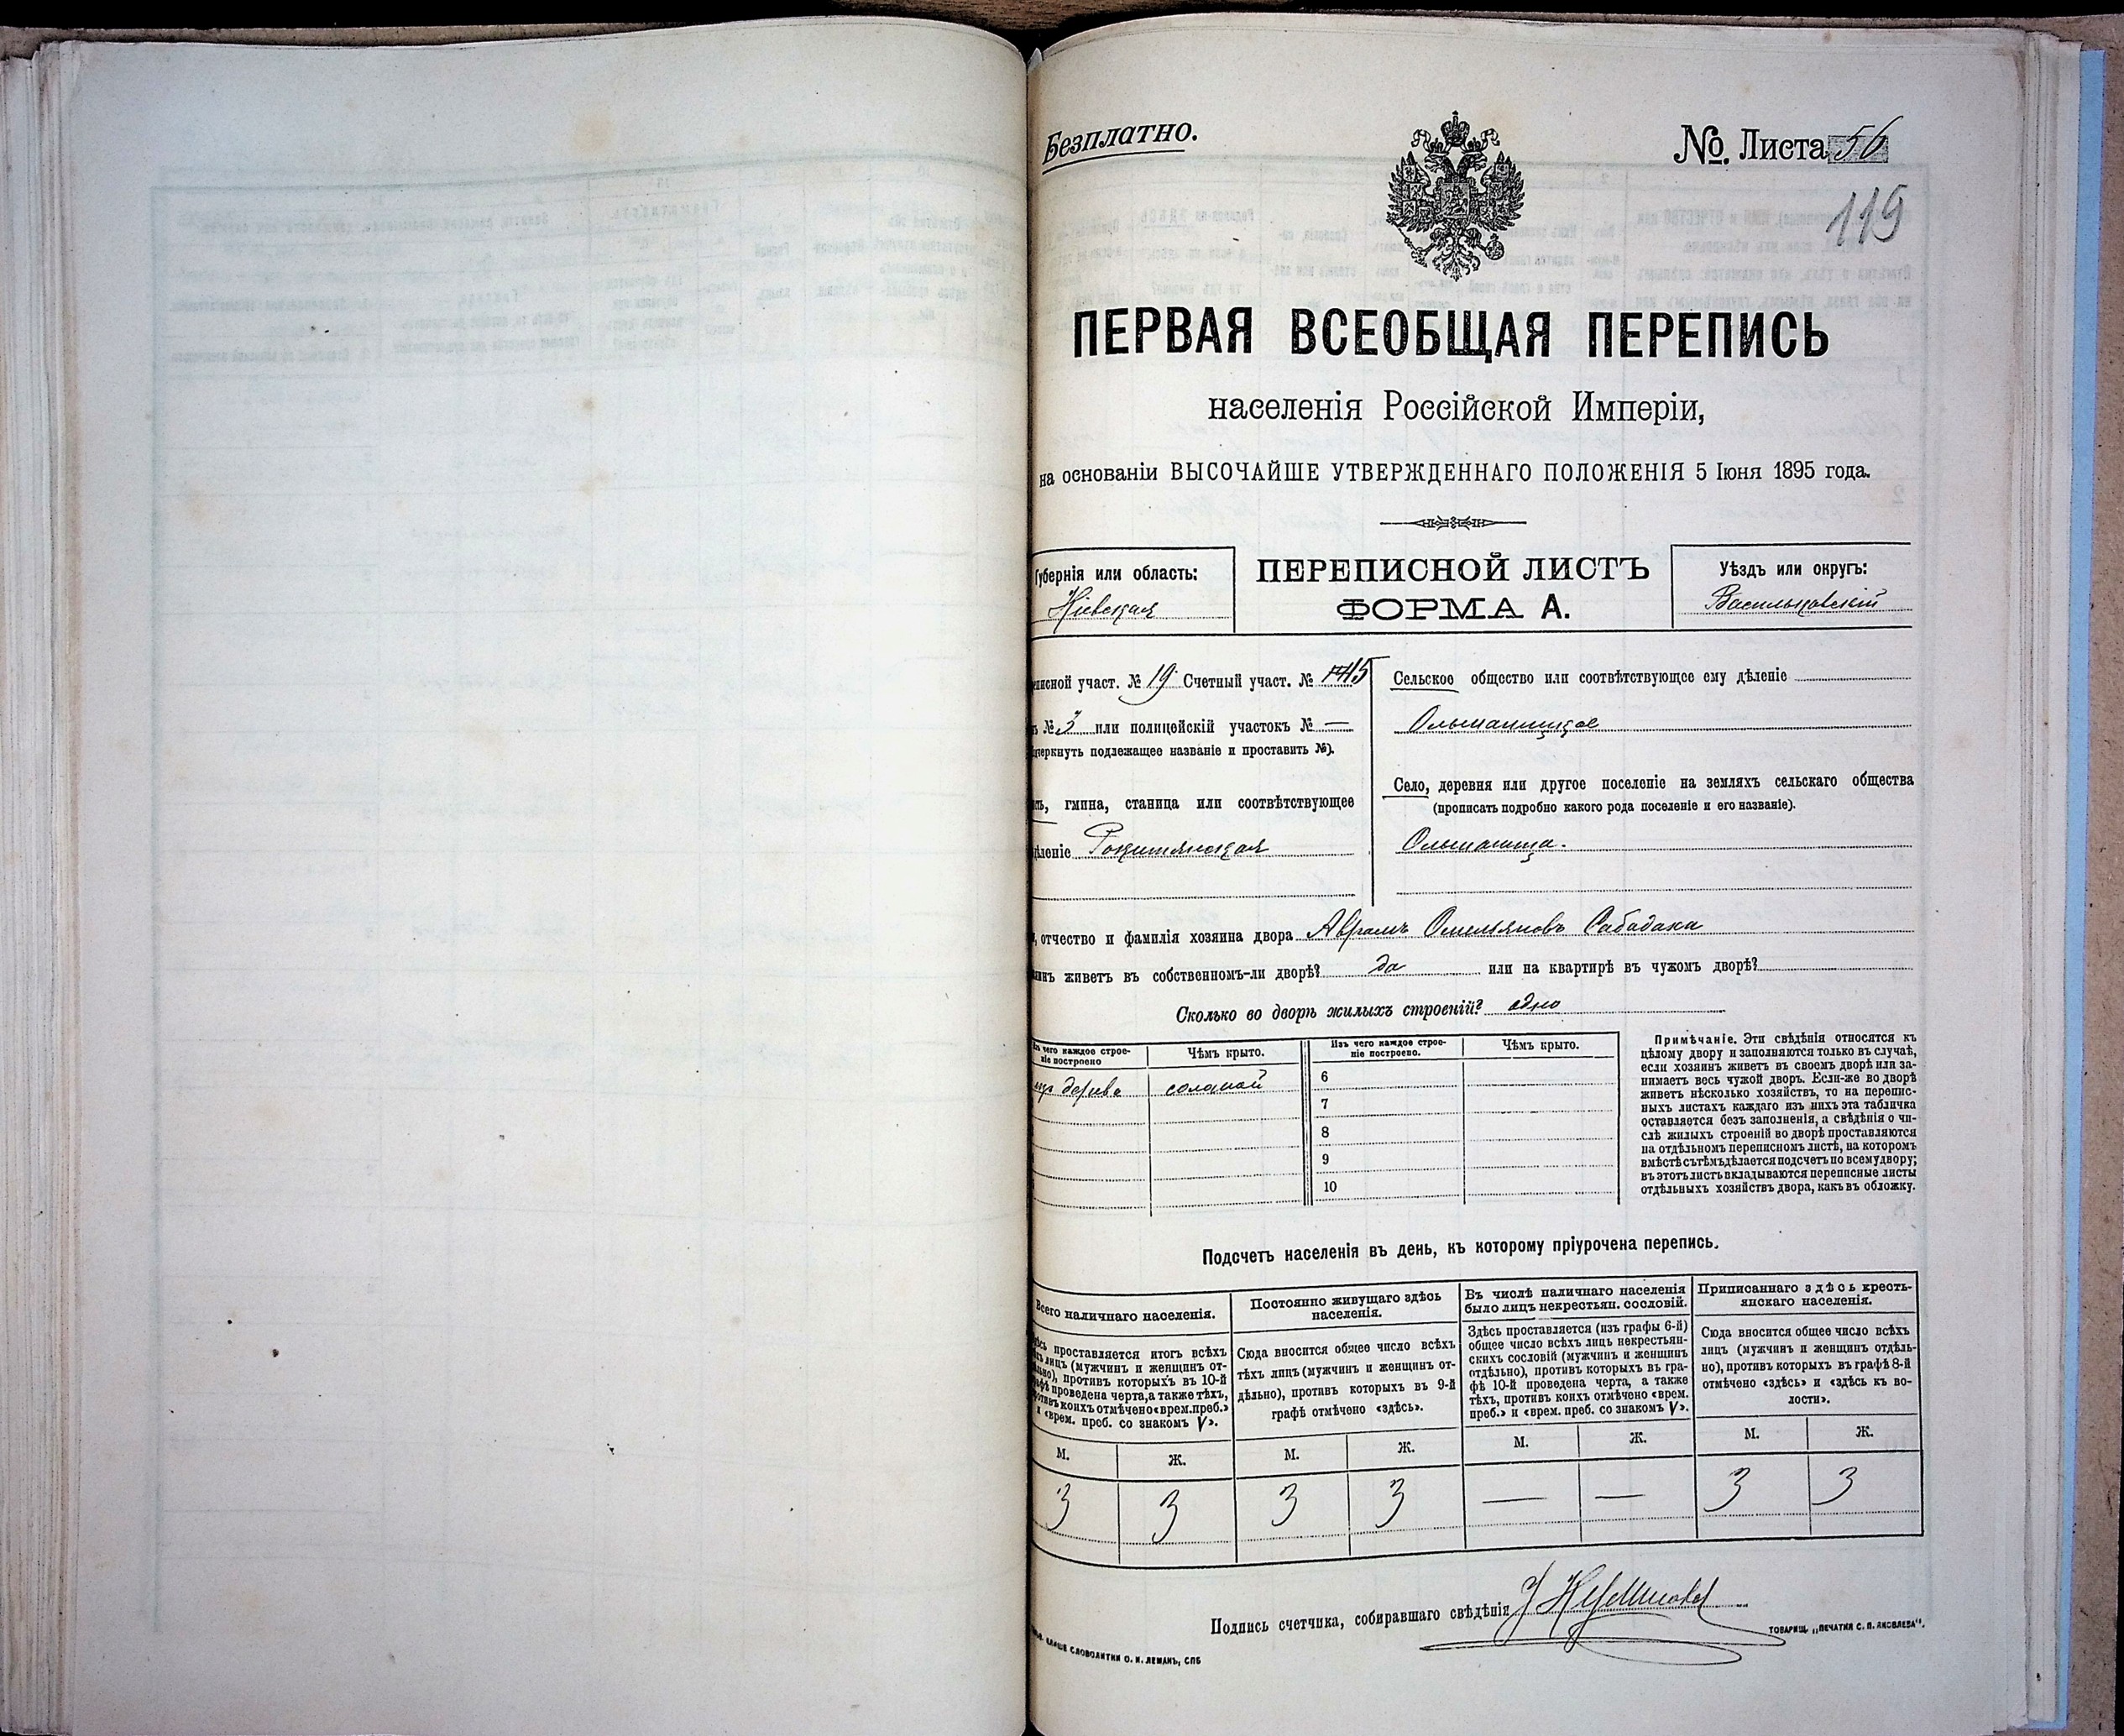 Безплатно.
№ Листа 56
119
ПЕРВАЯ ВСЕОБЩАЯ ПЕРЕПИСЬ
населенія Россійской Имперіи,
на основаніи ВЫСОЧАЙШЕ УТВЕРЖДЕННАГО ПОЛОЖЕНІЯ 5 Іюня 1895 года.
Губернія или область:
Кіевская
ПЕРЕПИСНОЙ ЛИСТЪ
ФОРМА А.
Уѣздъ или округъ:
Васильковскій
писной участ. № 19 Счетный участ. №
№ 3 или полицейскій участокъ № —
черкнуть подлежащее названіе и проставить №).
гмина, станица или соотвѣтствующее
дѣленіе Рокитянская
Сельское общество или соотвѣтствующее ему дѣленіе
Ольшаницкое
Село, деревня или другое поселеніе на земляхъ сельскаго общества
(прописать подробно какого рода поселеніе и его названіе).
Ольшаница.
отчество и фамилія хозяина двора Аврамъ Омельяновъ Сабадаха
инъ живетъ въ собственномъ-ли дворѣ? да или на квартирѣ въ чужомъ дворѣ?
Сколько во дворѣ жилыхъ строеній? одно
Изъ чего каждое строе-
ніе построено
Чѣмъ крыто.
Изъ чего каждое строе-
ніе построено.
Чѣмъ крыто.
изъ дерева соломой
6
7
8
9
10
Примѣчаніе. Эти свѣдѣнія относятся къ
цѣлому двору и заполняются только въ случаѣ,
если хозяинъ живетъ въ своемъ дворѣ или за-
нимаетъ весь чужой дворъ. Если-же во дворѣ
живетъ нѣсколько хозяйствъ, то на перепис-
ныхъ листахъ каждаго изъ нихъ эта табличка
оставляется безъ заполненія, а свѣдѣнія о чи-
слѣ жилыхъ строеній во дворѣ проставляются
на отдѣльномъ переписномъ листѣ, на которомъ
вмѣстѣ съ тѣмъ дѣлается подсчетъ по всему двору;
въ этотъ листъ вкладываются переписные листы
отдѣльныхъ хозяйствъ двора, какъ въ обложку.
Подсчетъ населенія въ день, къ которому пріурочена перепись.
Всего наличнаго населенія.
Здѣсь проставляется итогъ всѣхъ
лицъ (мужчинъ и женщинъ от-
дѣльно), противъ которыхъ въ 10-й
графѣ проведена черта, а также тѣхъ,
противъ коихъ отмѣчено «врем. преб.»
и «врем. преб. со знакомъ V».
Постоянно живущаго здѣсь
населенія.
Сюда вносится общее число всѣхъ
тѣхъ лицъ (мужчинъ и женщинъ от-
дѣльно), противъ которыхъ въ 9-й
графѣ отмѣчено «здѣсь».
Въ числѣ наличнаго населенія
было лицъ некрестьян. сословій.
Здѣсь проставляется (изъ графы 6-й)
общее число всѣхъ лицъ некрестьян-
скихъ сословій (мужчинъ и женщинъ
отдѣльно), противъ которыхъ въ гра-
фѣ 10-й проведена черта, а также
тѣхъ, противъ коихъ отмѣчено «врем.
преб.» и «врем. преб. со знакомъ V».
Приписаннаго здѣсь кресть-
янскаго населенія.
Сюда вносится общее число всѣхъ
лицъ (мужчинъ и женщинъ отдѣль-
но), противъ которыхъ въ графѣ 8-й
отмѣчено «здѣсь» и «здѣсь къ во-
лости».
М. Ж. М. Ж. М. Ж. М. Ж.
3 3 3 3 — — 3 3
Подпись счетчика, собиравшаго свѣдѣнія
СЛОВОЛИТНИ О. И. ЛЕМАНЪ, СПБ
ТОВАРИЩ. „ПЕЧАТНЯ С. П. ЯКОВЛЕВА".